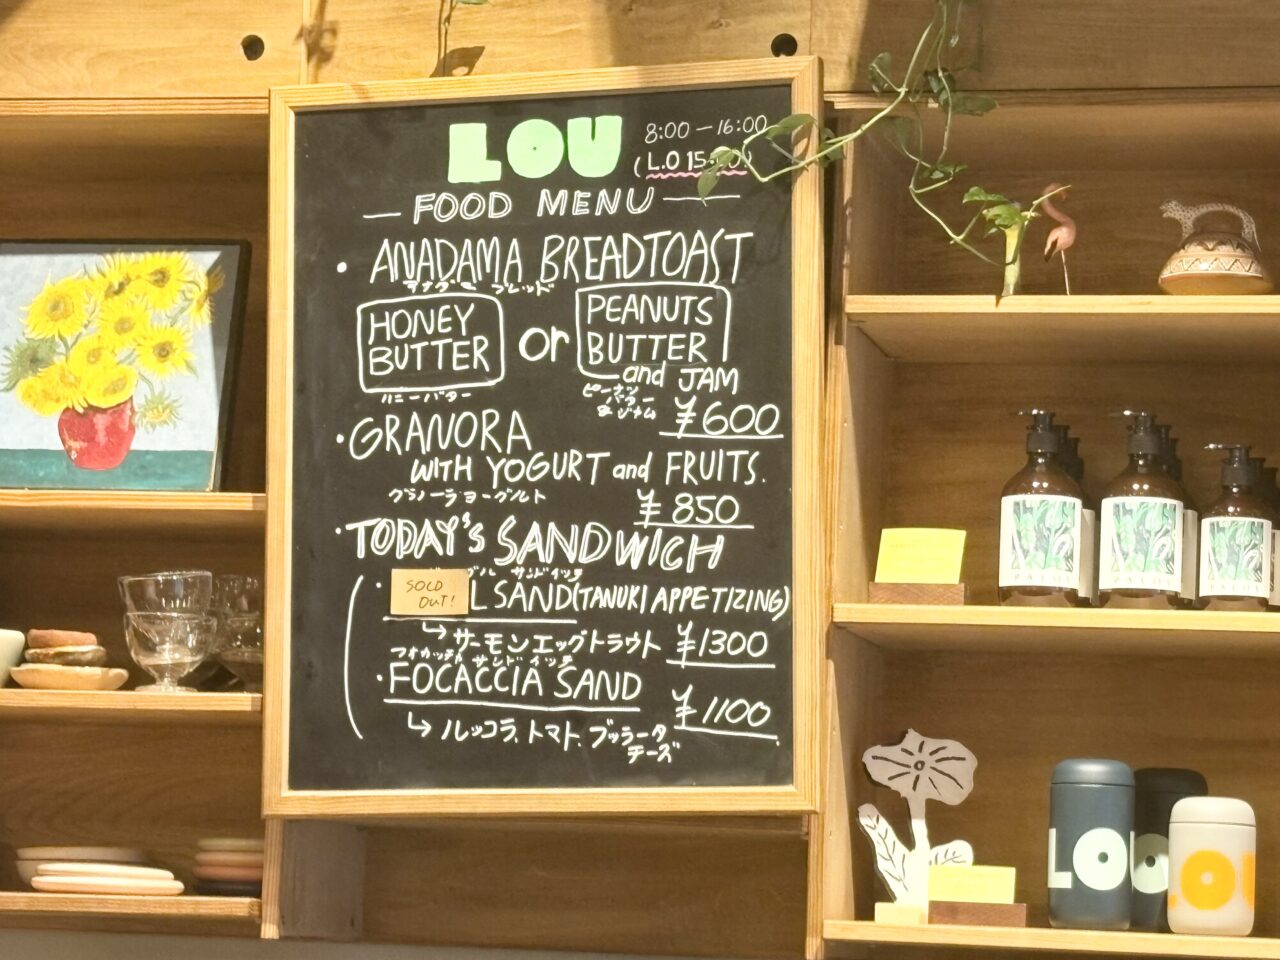 LOU
8:00 — 16:00
(L.O 15:
— FOOD MENU —
• ANADAMA BREADTOAST
ブレッド
HONEY BUTTER or PEANUTS BUTTER and JAM
ハニーバター
ピーナツバター&ジャム
¥600
• GRANORA
WITH YOGURT and FRUITS.
グラノーラヨーグルト
¥850
• TODAY'S SANDWICH
サンドイッチ
SOLD OUT!
L SAND (TANUKI APPETIZING)
↳ サーモンエッグトラウト ¥1300
フォカッチャ サンドイッチ
• FOCACCIA SAND
¥1100
↳ ルッコラ、トマト、ブッラータチーズ
PALOI
PALOI
LOU
LOU